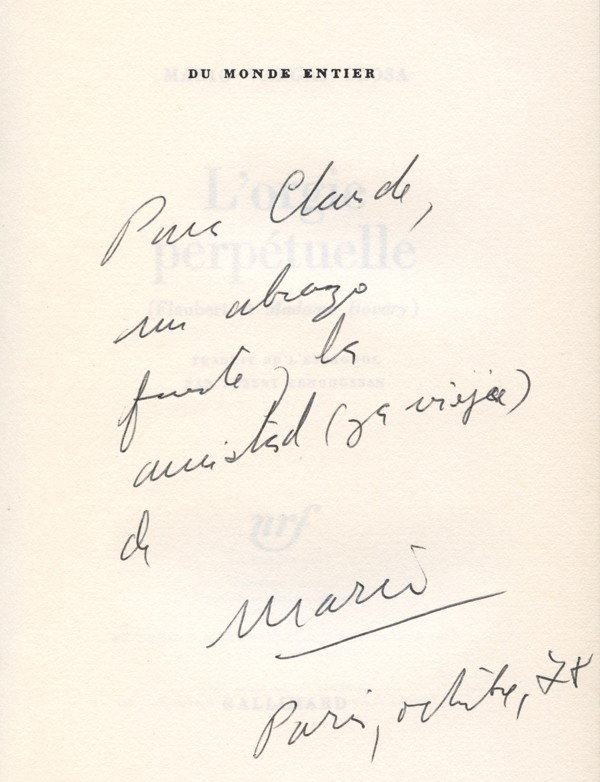 DU MONDE ENTIER
Para Claude,
L'orgie
perpétuelle
un abrazo
(Flaubert et Madame Bovary)
fuerte y la
TRADUIT DE L'ESPAGNOL
amistad (ya vieja)
nrf
de
Mario
GALLIMARD
Paris, octubre, 78